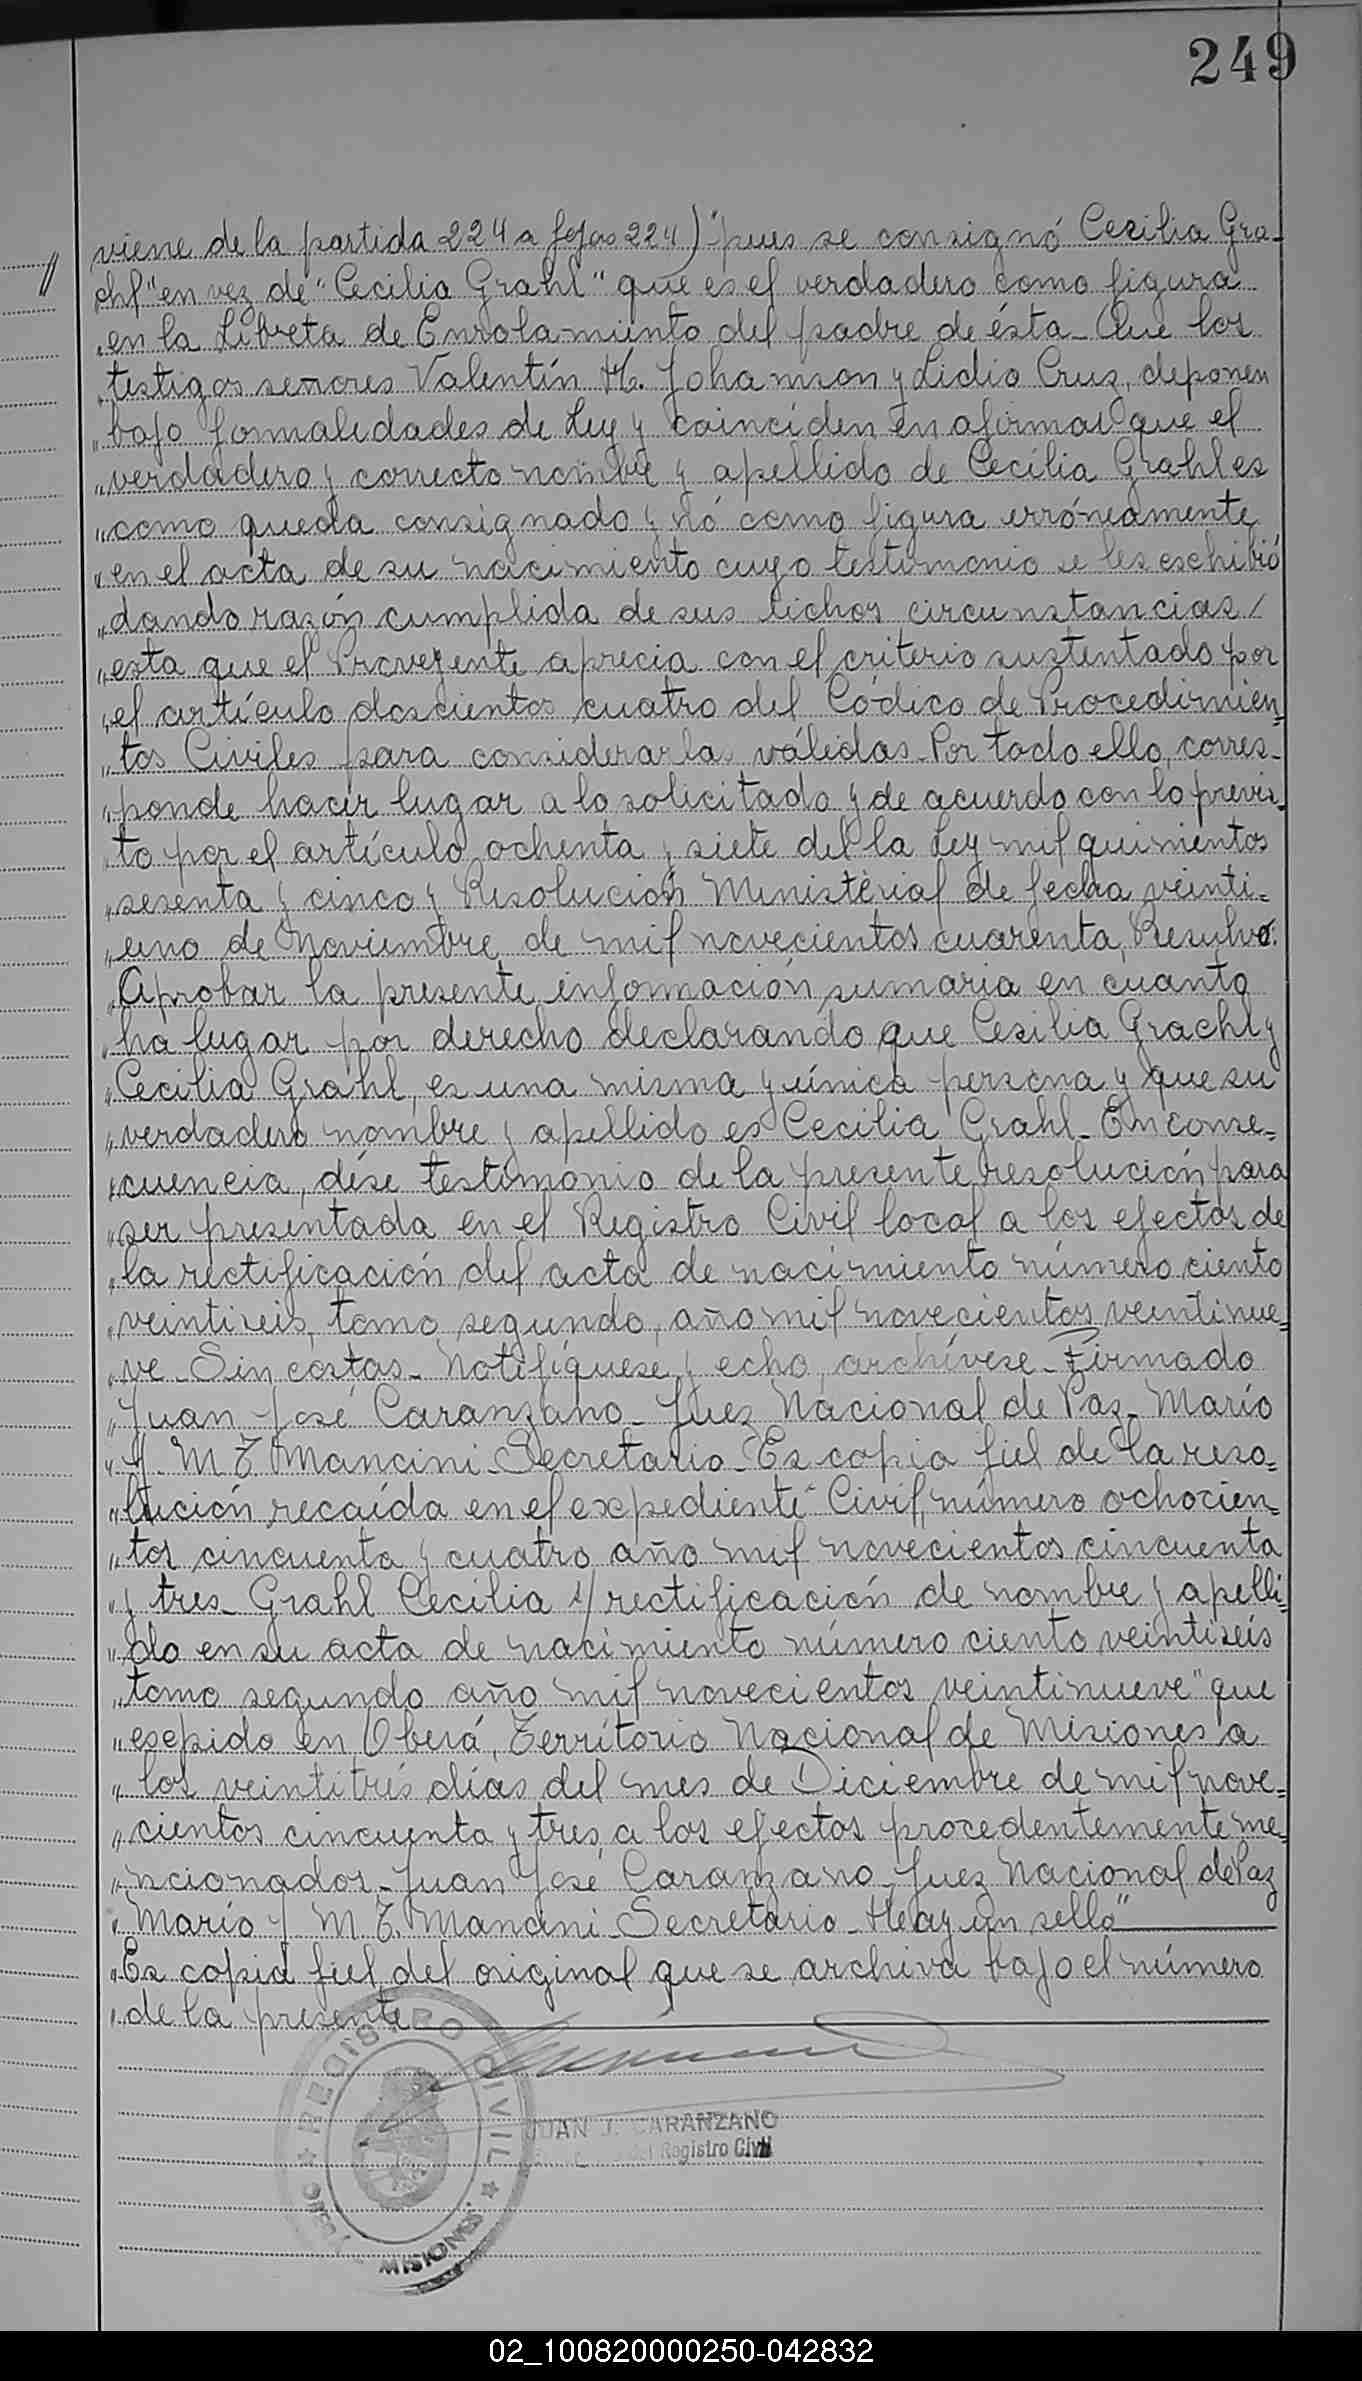 249
viene de la partida 224 a fojas 224) "pues se consignó Cecilia Gra-
chl" en vez de "Cecilia Grahl" que es el verdadero como figura
„en la Libreta de Enrolamiento del padre de ésta_ Que los
„testigos señores Valentín H. Johamson y Lidio Cruz, deponen
„bajo formalidades de Ley y coinciden en afirmar que el
„verdadero y correcto nombre y apellido de Cecilia Grahl es
„como queda consignado y nó como figura erróneamente
„en el acta de su nacimiento cuyo testimonio se les eschibió
„dando razón cumplida de sus dichos circunstancias/
„esta que el Proveyente aprecia con el criterio sustentado por
„el artículo doscientos cuatro del Códico de Procedimien=
„tos Civiles para considerarlas válidas_ Por todo ello, corres_
„ponde hacer lugar a lo solicitado y de acuerdo con lo previs_
„to por el artículo ochenta y siete del la Ley mil quinientos
„sesenta y cinco y Resolución Ministerial de fecha veinti=
„uno de Noviembre de mil novecientos cuarenta, Resulvo:
„Aprobar la presente información sumaria en cuanto
„ha lugar por derecho declarando que Cesilia Grachl y
„Cecilia Grahl, es una misma y única persona y que su
„verdadero nombre y apellido es Cecilia Grahl_ En conse=
„cuencia, dése testimonio de la presente resolución para
„ser presentada en el Registro Civil local a los efectos de
„la rectificación del acta de nacimiento número ciento
„veintiseis, tomo segundo, año mil novecientos veintinue=
„ve_ Sin costas_ Notifíquese y echo, archívese_ Firmado
„Juan José Caranzano_ Juez Nacional de Paz_ Mario
„J. M. T. Mancini_ Secretario_ Es copia fiel de la reso=
„lución recaída en el expediente "Civil, número ochocien=
„tos cincuenta y cuatro año mil novecientos cincuenta
„y tres_ Grahl Cecilia s/ rectificación de nombre y apelli=
„do en su acta de nacimiento número ciento veintiseis
„tomo segundo año mil novecientos veintinueve" que
„escpido en Oberá, Territorio Nacional de Misiones a
„los veintitrés días del mes de Diciembre de mil nove=
„cientos cincuenta y tres a los efectos procedentemente me=
„ncionados_ Juan José Caranzano_ Juez Nacional de Paz
„Mario J. M. T. Mancini_ Secretario_ Heay un sello"
„Es copia fiel del original que se archiva bajo el número
„de la presente
REGISTRO CIVIL
MISIONES
JUAN J. CARANZANO
del Registro Civil
02_100820000250-042832